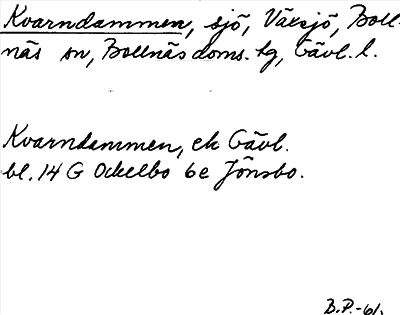 Kvarndammen, sjö, Växsjö, Boll-
näs sn, Bollnäs doms. tg, Gävl. l.
Kvarndammen, ek Gävl.
bl. 14 G Ockelbo 6e Jönsbo.
B.P.-61.